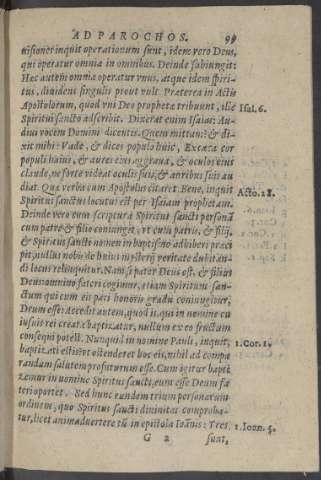 AD PAROCHOS. 99
uisiones inquit operationum sunt, idem vero Deus,
qui operatur omnia in omnibus. Deinde subiungit:
Hec autem omnia operatur vnus, atque idem spiri-
tus, diuidens singulis prout vult. Praeterea in Actis
Apostolorum, quod vni Deo prophetae tribuunt, ille
Isai. 6.
Spiritui sancto adscribit. Dixerat enim Isaias: Au-
diui vocem Domini dicentis. Quem mittam? & di-
xit mihi: Vade, & dices populo huic, Excaeca cor
populi huius, & aures eius aggraua, & oculos eius
claude, ne forte videat oculis suis, & auribus suis au
diat. Quae verba cum Apostolus citaret. Bene, inquit
Acto. 28.
Spiritus sanctus locutus est per Isaiam prophetam.
Deinde vero cum scriptura Spiritus sancti personã
cum patre & filio coniungit, vt cum patris, & filij,
& Spiritus sancti nomen in baptismo adhiberi praeci
pit, nullus nobis de huius mysterij veritate dubitan-
di locus relinquitur. Nam si pater Deus est, & filium
Deum omnino fateri cogimur, etiam Spiritum san-
ctum qui cum eis pari honoris gradu coniungitur,
Deum esse: Accedit autem, quod is, qui in nomine cu
iusuis rei creatae baptizatur, nullum ex eo fructum
consequi potest. Nunquid in nomine Pauli, inquit,
1. Cor. 1.
baptizati estis? vt ostenderet hoc eis, nihil ad compa
randam salutem profuturum esse. Cum igitur baptiz
zemur in nomine Spiritus sancti, eum esse Deum fa
teri oportet. Sed hunc eundem trium personarum
ordinem, quo Spiritus sancti diuinitas comproba-
tur, licet animaduertere tũ in epistola Ioãnis: Tres
1. Ioan. 5.
G 2 sunt,